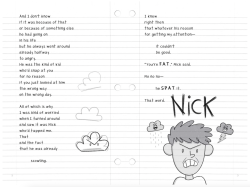 And I don't know
if it was because of that
or because of something else
he had going on
in his life
but he always went around
already halfway
to angry.
He was the kind of kid
who'd snap at you
for no reason
if you just looked at him
the wrong way
on the wrong day.
All of which is why
I was kind of worried
when I turned around
and saw it was Nick
who'd tapped me.
That
and the fact
that he was already
scowling.
I knew
right then
that whatever his reason
for getting my attention—
it couldn't
be good.
"You're FAT," Nick said.
No no no—
He SPAT it.
That word.
NICK